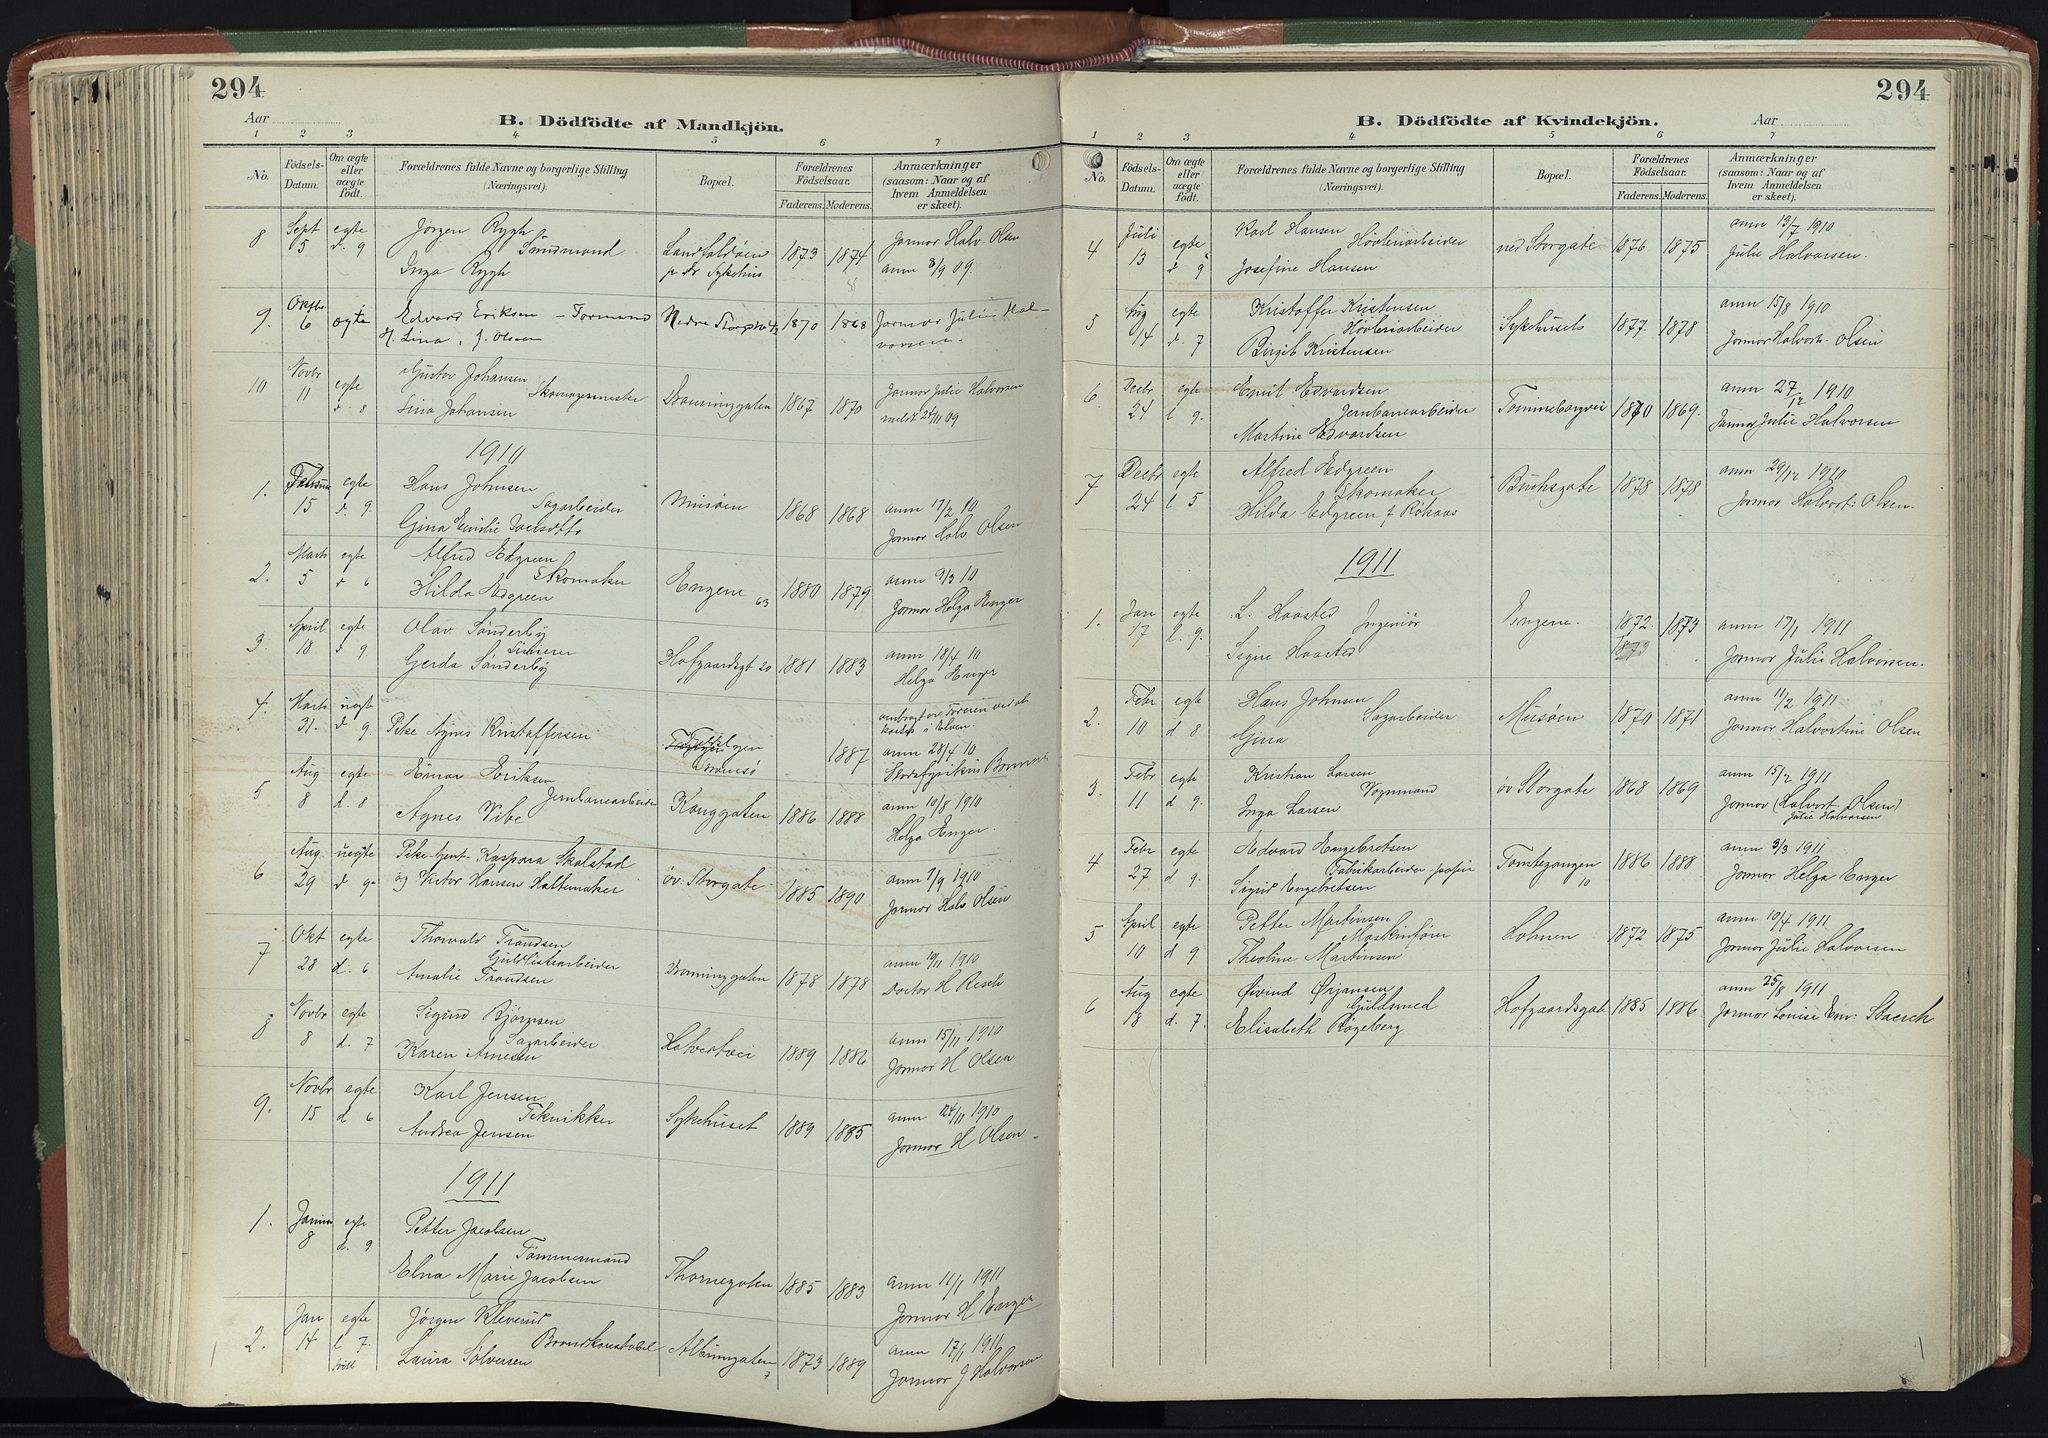 294
Aar
B. Dödfödte af Mandkjön.
1 2 3 4 5 6 7
No.
Födsels-Datum.
Om ægte eller uægte födt.
Forældrenes fulde Navne og borgerlige Stilling (Næringsvei).
Bopæl.
Forældrenes Födselsaar.
Faderens. Moderens.
Anmærkninger (saasom: Naar og af hvem Anmeldelsen er skeet).
8 Sept egte Jørgen Rygh Jormor Halv. Olsen
5 d. 9 Inga Rygh Landfaldøen 1873 1874 anm 8/9 09
9. Oktbr egte Edvard Eriksen – Formand Nedre Storgt 1870 1868 Jormor Julie Hal-
6 H. Lina, f. Olsen vorsen
10 Novbr egte Gustav Johansen Skomagermester Dronninggaten 1867 1870 Jormor Julie Halvorsen
11 d 8 Lina Johansen meldt 24/11 09
1910
1. egte Hans Johnsen Sagarbeider Misøen 1868 1868 anm 17/2 10
15 d. 9. Gina Emilie Jormor Halv Olsen
2. Marts egte Alfred Edgreen Skomaker Engene 63 1880 1879 anm 9/3 10
5 d 6 Hilda Edgreen Jormor Helga Enger
3. April egte Olav Sønderby Hofgaardsgt 20 1881 1883 anm 18/4 10
18 d 9 Gerda Sønderby Helga Enger
4. Marts uegte Pike Agnes Kristoffersen Tromsø 1887
31. d 9. anm 28/4 10
5 Aug egte Einar Eriksen Jernbanearbeider Konggaten 1886 1888 anm 10/8 1910
8 d. 8 Agnes Vibe Helga Enger.
6 Aug uegte Pike Kaspara Skalstad øv: Storgate 1885 1890 anm 1/9 1910
29 d 9 og Victor Hansen Hattemaker Jormor Halv Olsen
7 Okt egte Thorvald Trondsen Guldlistearbeider Dronninggaten 1878 1878 anm 10/11 1910
28 d. 6 Amalie Trondsen Doctor H Resch
8 Novbr egte Sigurd Bjørnsen Sagarbeider 1889 1886 anm 15/11 1910
8 d. 7 Karen Arnesen Jormor H Olsen
9. Novbr egte Karl Jensen Teknikker Sykehuset 1889 1885 anm 24/11 1910
15 d 6 Andrea Jensen Jormor H Olsen
1911
1. egte Petter Jacobsen Tømmermand Thornegaten 1885 1883 anm 11/1 1911
8 d. 9 Elna Marie Jacobsen Jormor H Enger
2. Jan egte Jørgen Kleverud Brandkonstabel Albumgaten 7 1873 1889 anm 17/1 1911
14 l 7. Laura Sølversen Jormor J Halvorsen
294
Aar
B. Dödfödte af Kvindekjön.
1 2 3 4 5 6 7
No.
Födsels-Datum.
Om ægte eller uægte födt.
Forældrenes fulde Navne og borgerlige Stilling (Næringsvei).
Bopæl.
Forældrenes Födselsaar.
Faderens. Moderens.
Anmærkninger (saasom: Naar og af hvem Anmeldelsen er skeet).
4 Juli egte Karl Hansen Høvleriarbeider ned Storgate 1876 1875 anm 13/7 1910
13 d 9 Josefine Hansen Julie Halvorsen.
5 Aug egte Kristoffer Kristensen Høvleriarbeider Sykehuset 1877. 1878 anm 15/8 1910
14 d. 7 Birgit Kristensen Jormor Halvort. Olsen
6 Decbr egte Emil Edvardsen Jernbanearbeider Tømmeborgvei 1870 1869. anm 27/12 1910
24 l 9. Martine Edvardsen Jormor Julie Halvorsen
7 Decbr egte Alfred Edgreen Skomaker Buchsgate 1878 1878 anm 29/12 1910
24 l 5 Hilda Edgreen f Røkaas Jormor Halvort: Olsen.
1911
1. Jan egte L. Haasted Ingeniør Engene. 1872. 1873 anm 17/1 1911
17 l. 9. Signe Haasted 1873 Jormor Julie Halvorsen.
2. Febr egte Hans Johnsen Sagarbeider Misøen 1870 1871 anm 11/2 1911
10 d 8 Gina Jormor Halvortine Olsen
3. Febr egte Kristian Larsen Vognmand øv Storgate 1868 1869 anm 15/2 1911
11 d 9. Inga Larsen Jormor (Halvort. Olsen)
Julie Halvorsen
4 Febr egte Edvard Engebretsen Fabrikarbeider Tomtegangen 10 1886 1888 anm 3/3 1911
27 d 9. Sigrid Engebretsen Jormor Helga Enger
5 April egte Petter Martinsen Maskinfører Holmen 1872 1875 anm 10/4 1911
10 d 9 Theoline Martinsen Jormor Julie Halvorsen
6 Aug egte Øivind Ørjansen Guldsmed Hofgaardsgate 1885 1886 anm 25/8 1911
18 d. 7. Elisabeth Røgeberg Jormor Louise Em: Staerck